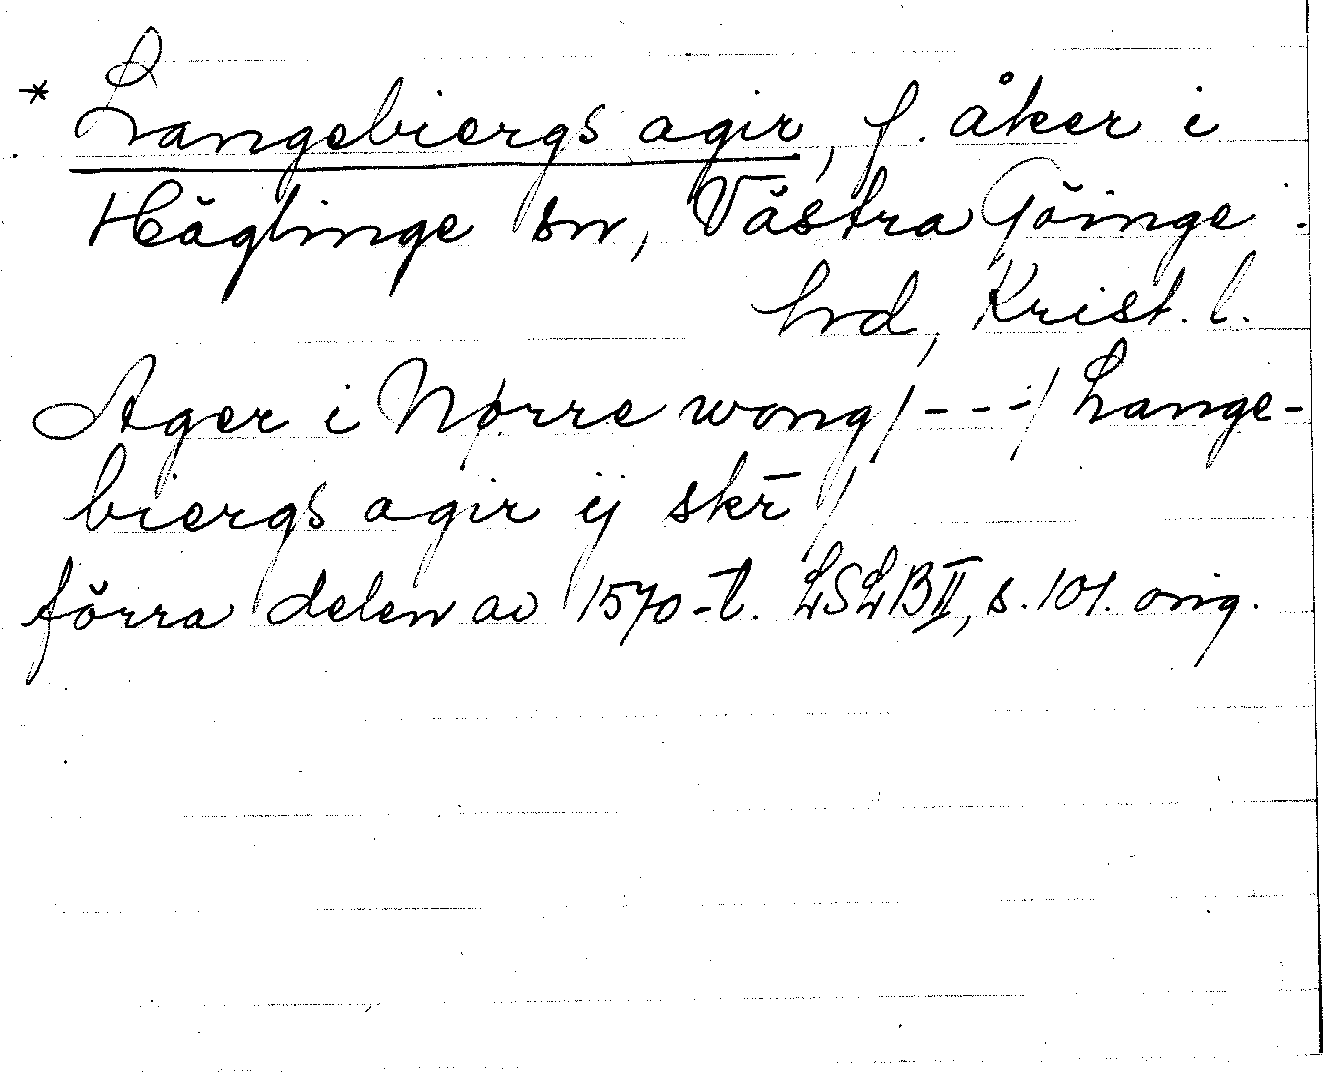 * Langebiergs agir, f. åker i
Häglinge sn, Västra Göinge
hrd, Krist. l.
Ager i Nørre wong/---/Lange-
biergs agir ij skr̄/
förra delen av 1570-t. LSLB II, s. 101. orig.